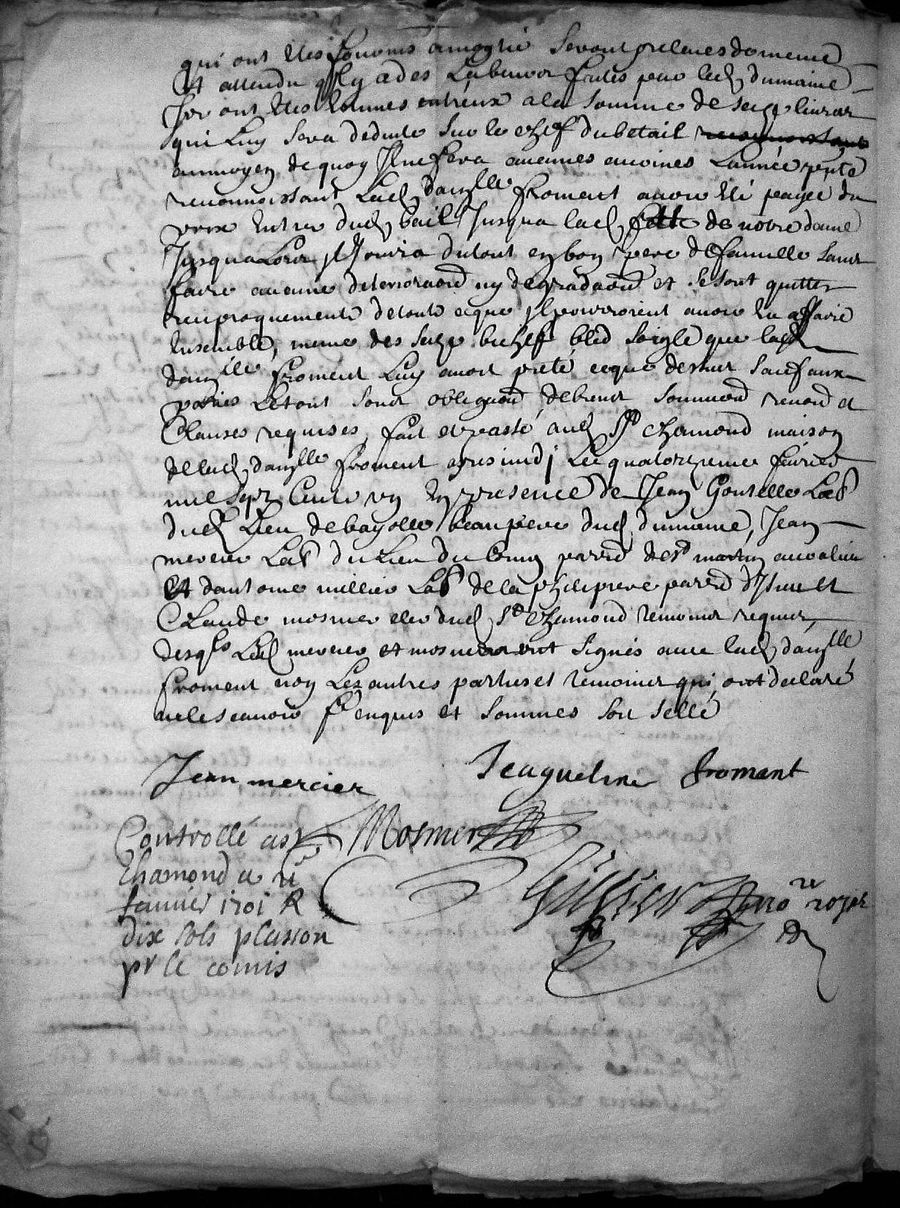 qui ont estes fournis a moytié seront prelevés de meme
Et attendu quil y a des labeurs faites par led dumaine
qui luy sera deduite sur le chef du betail
aumoyen dequoy Il ne fera aucunes avoines Lannée pnte
reconnoissant Lad damlle froment avoir Eté payée du
prix Entier dud bail Jusqua lad fette de notre dame
Jusqua Lors Il Jouira dutout en bon pere defamille sans
faire aucune deterioraon ny degradaon et se sont quittes
reciproquement de tout ce que Ils pourroient avoir Eu affaire
Ensemble, meme des seize bichef bled soigle que lad
damlle froment Luy avoit preté, ceque dessus
parties Le tout sous obligaon, renon et
Clauses requises, fait et passé aud St chamond maison
de lad damlle froment apres midi Le quatorzieme
mil sept Cents un En presence de Jean Gontelle Labr
dud Lieu de bayolle beaupere dud dumaine, Jean
mercier Labr du Lieu du parse de st martin
Et dantoine millier Labr de la parse et
Claude mosnier clerc dud St chamond temoins requis,
desqls Led mercier et mosnier ont signés avec lad damlle
froment non Les autres parties et temoins qui ont declaré
ne le scavoir Enquis et sommes soit sellé
Jean mercier
Jeaqueline fromant
Mosnier
Controllé a st
Chamond
1701 R
dix sols plasson
pr le comis
no re royal